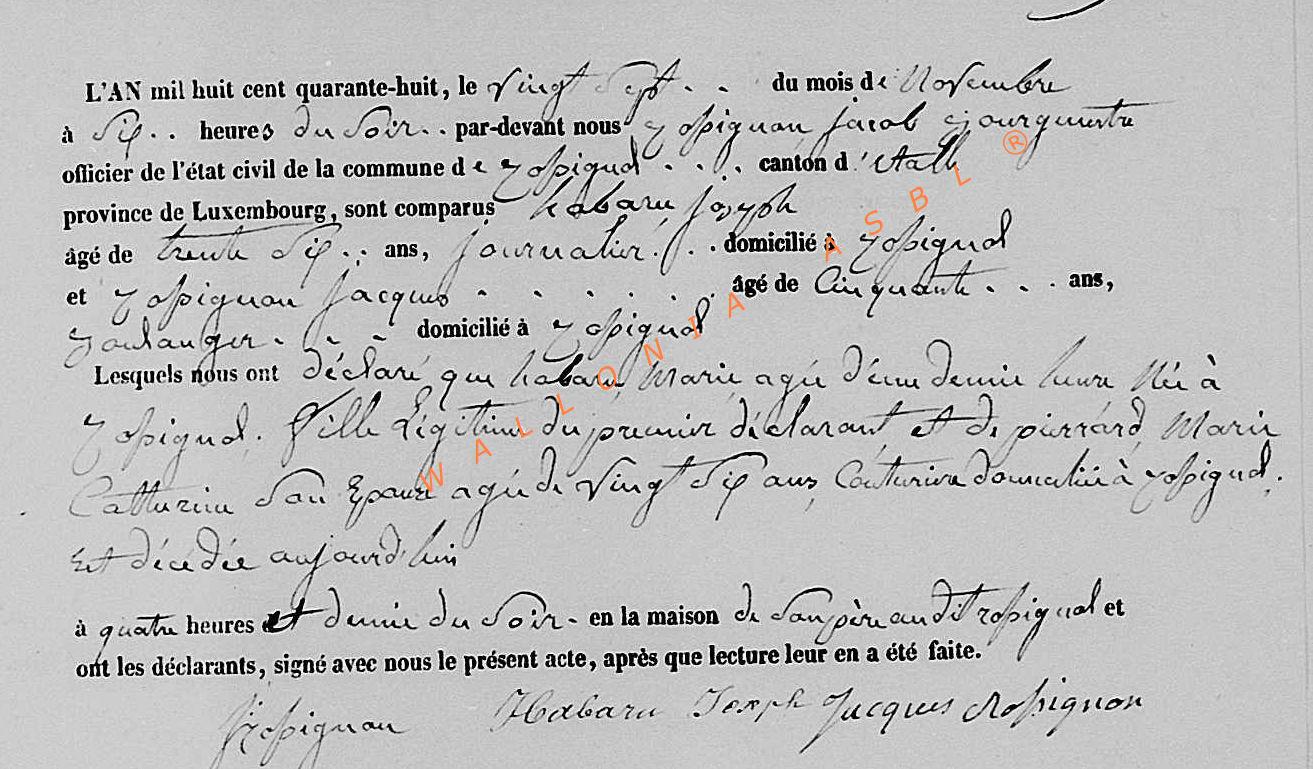 L'AN mil huit cent quarante-huit, le vingt sept . . du mois de Novembre
à Six . . heures du Soir . . par-devant nous rossignon jacob bourgmestre
officier de l'état civil de la commune de rossignol . . . . canton d'étalle
province de Luxembourg, sont comparus habaru joseph
âgé de trente Six . . ans, journalier . . . domicilié à rossignol
et rossignon jacques . . . . . . âgé de Cinquante . . . ans,
boulanger . . . domicilié à rossignol
Lesquels nous ont déclaré que habaru Marie agée d'une demie heure Née à
rossignol. fille Légitime du premier déclarant et de pierrard Marie
Catherine Son Epouse agée de vingt Six ans Couturière domiciliée à rossignol.
Est décédée aujourd'hui
à quatre heures et demie du Soir - en la maison de Son père audit rossignol et
ont les déclarants, signé avec nous le présent acte, après que lecture leur en a été faite.
J Rossignon Habaru Joseph Jacques Rossignon
WALLONIA ASBL ®